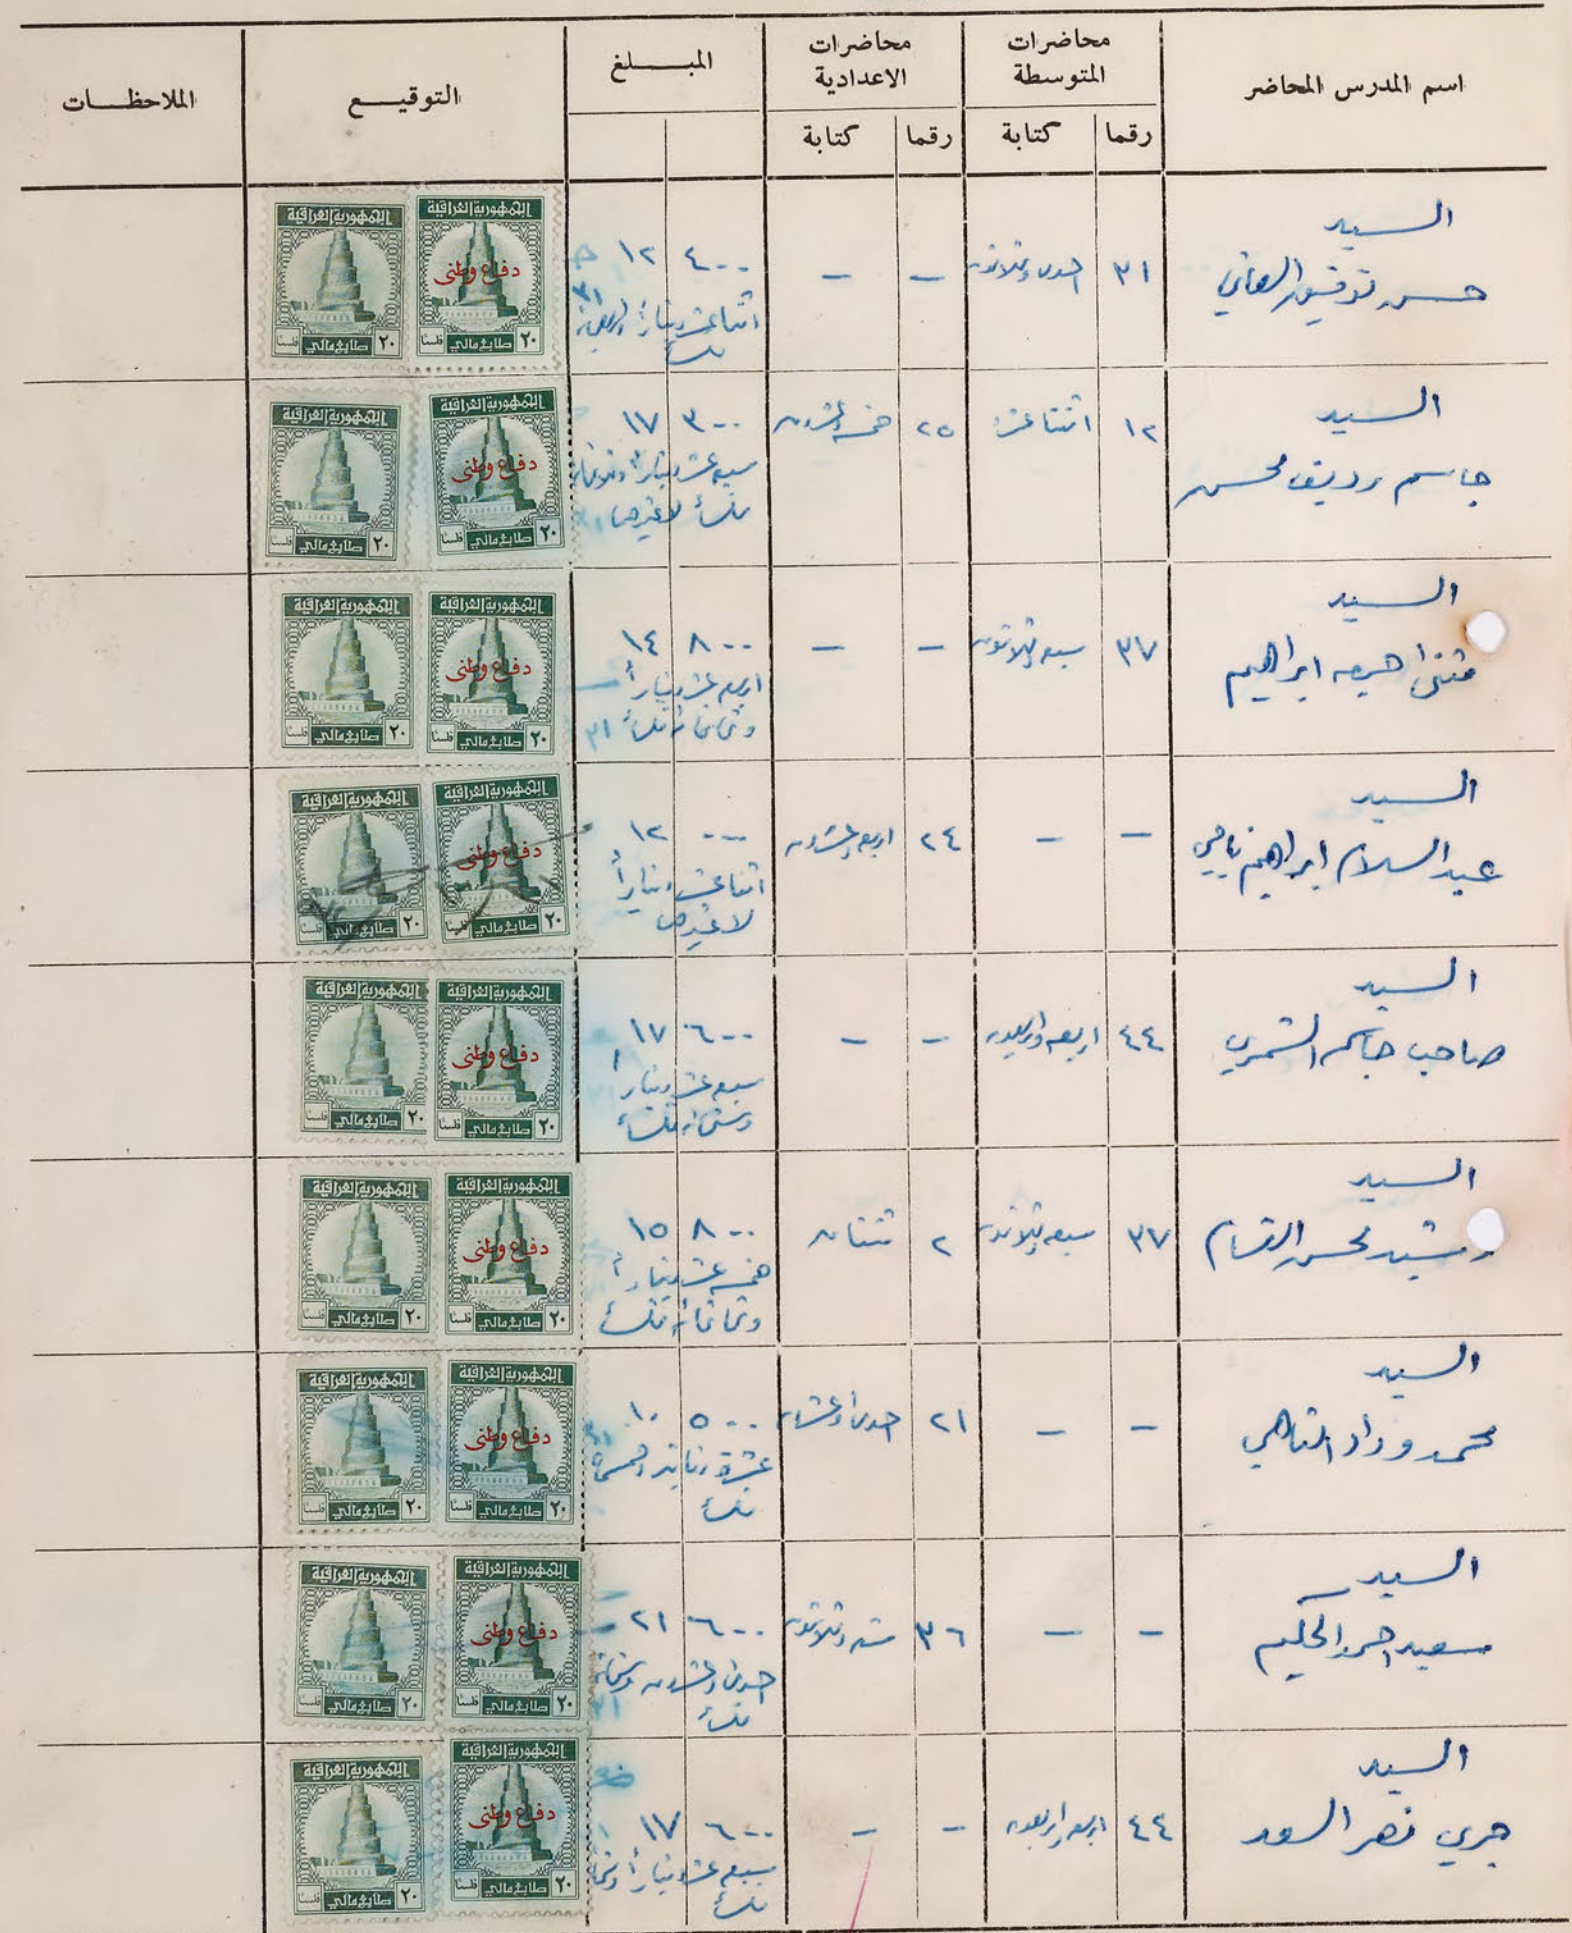 اسم المدرس المحاضر
محاضرات المتوسطة
رقما
كتابة
محاضرات الاعدادية
رقما
كتابة
المبلغ
التوقيع
الملاحظات
السيد
حسن توفيق العاني
٣١ احدى وثلاثون - - ٤٠٠ ١٢
اثنا عشر ديناراً واربعمائة
فلساً
الجمهورية العراقية
دفاع وطني
٢٠ طابع مالي فلسا
الجمهورية العراقية
٢٠ طابع مالي فلسا
السيد
جاسم رديف محسن
١٢ اثنتا عشر ٢٥ خمسة وعشرون ٣٠٠ ١٧
سبعة عشر ديناراً وثلاثمائة
فلساً لا غيرها
الجمهورية العراقية
دفاع وطني
٢٠ طابع مالي فلسا
الجمهورية العراقية
٢٠ طابع مالي فلسا
السيد
مثنى ابراهيم
٣٧ سبعة وثلاثون - - ٨٠٠ ١٤
اربعة عشر ديناراً
وثمانمائة فلساً
الجمهورية العراقية
دفاع وطني
٢٠ طابع مالي فلسا
الجمهورية العراقية
٢٠ طابع مالي فلسا
السيد
عبد السلام ابراهيم ناجي
- - ٢٤ اربعة وعشرون ٠٠٠ ١٢
اثنا عشر ديناراً
لا غيرها
الجمهورية العراقية
دفاع وطني
٢٠ طابع مالي فلسا
الجمهورية العراقية
٢٠ طابع مالي فلسا
السيد
صاحب جاسم الشمري
٤٤ اربعة واربعون - - ٦٠٠ ١٧
سبعة عشر ديناراً
وستمائة فلساً
الجمهورية العراقية
دفاع وطني
٢٠ طابع مالي فلسا
الجمهورية العراقية
٢٠ طابع مالي فلسا
السيد
رشيد محسن القسام
٣٧ سبعة وثلاثون ٢ ثنتان ٨٠٠ ١٥
خمسة عشر ديناراً
وثمانمائة فلساً
الجمهورية العراقية
دفاع وطني
٢٠ طابع مالي فلسا
الجمهورية العراقية
٢٠ طابع مالي فلسا
السيد
محمد وداد
- - ٢١ احدى وعشرون ٥٠٠ ١٠
عشرة دنانير وخمسمائة
فلساً
الجمهورية العراقية
دفاع وطني
٢٠ طابع مالي فلسا
الجمهورية العراقية
٢٠ طابع مالي فلسا
السيد
سعيد احمد الحكيم
- - ٣٦ ستة وثلاثون ٦٠٠ ٢١
احدى وعشرون وستمائة
فلساً
الجمهورية العراقية
دفاع وطني
٢٠ طابع مالي فلسا
الجمهورية العراقية
٢٠ طابع مالي فلسا
السيد
جري نصر السعد
٤٤ اربعة واربعون - - ٦٠٠ ١٧
سبعة عشر ديناراً وستمائة
فلساً
الجمهورية العراقية
دفاع وطني
٢٠ طابع مالي فلسا
الجمهورية العراقية
٢٠ طابع مالي فلسا